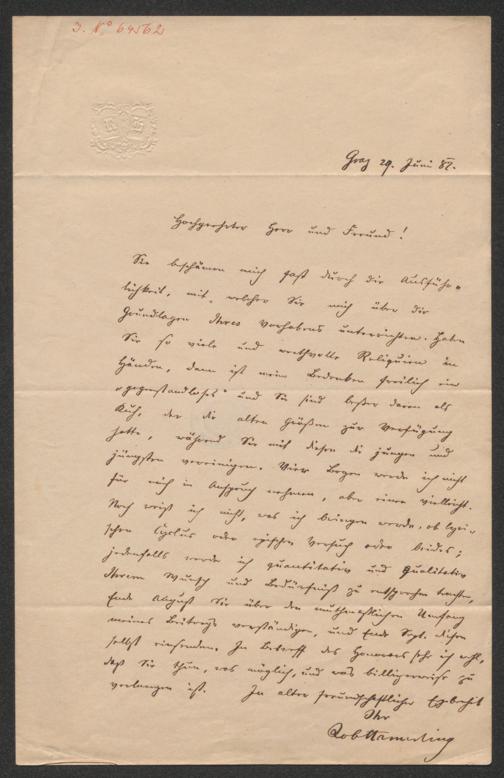 J. Nº 64562
Graz 29. Juni 82.
Hochgeehrter Herr und Freund!
Sie beschämen mich fast durch die Ausführ-
lichkeit, mit welcher Sie mich über die
Grundlagen Ihres Vorhabens unterrichten. Haben
Sie so viele und werthvolle Reliquien in
Händen, dann ist mein Bedenken freilich ein
„gegenstandloses“ und Sie sind besser daran als
Kuh, der die alten Größen zur Verfügung
hatte, während Sie mit diesen die jungen und
jüngsten vereinigen. Vier Bogen werde ich nicht
für mich in Anspruch nehmen, aber einen vielleicht.
Noch weiß ich nicht, was ich bringen werde, ob lyri-
schen Cyclus oder epischen Versuch oder beides;
jedenfalls werde ich quantitativ und qualitativ
Ihrem Wunsch und Bedürfniß zu entsprechen trachten,
Ende August Sie über den muthmaßlichen Umfang
meines Beitrags verständigen, und Ende Sept. diesen
selbst einsenden. In Betreff des Honorars seh' ich wohl,
daß Sie thun, was möglich, und was billigerweise zu
verlangen ist. In alter freundschaftlicher Ergebenheit
Ihr
Rob Hamerling